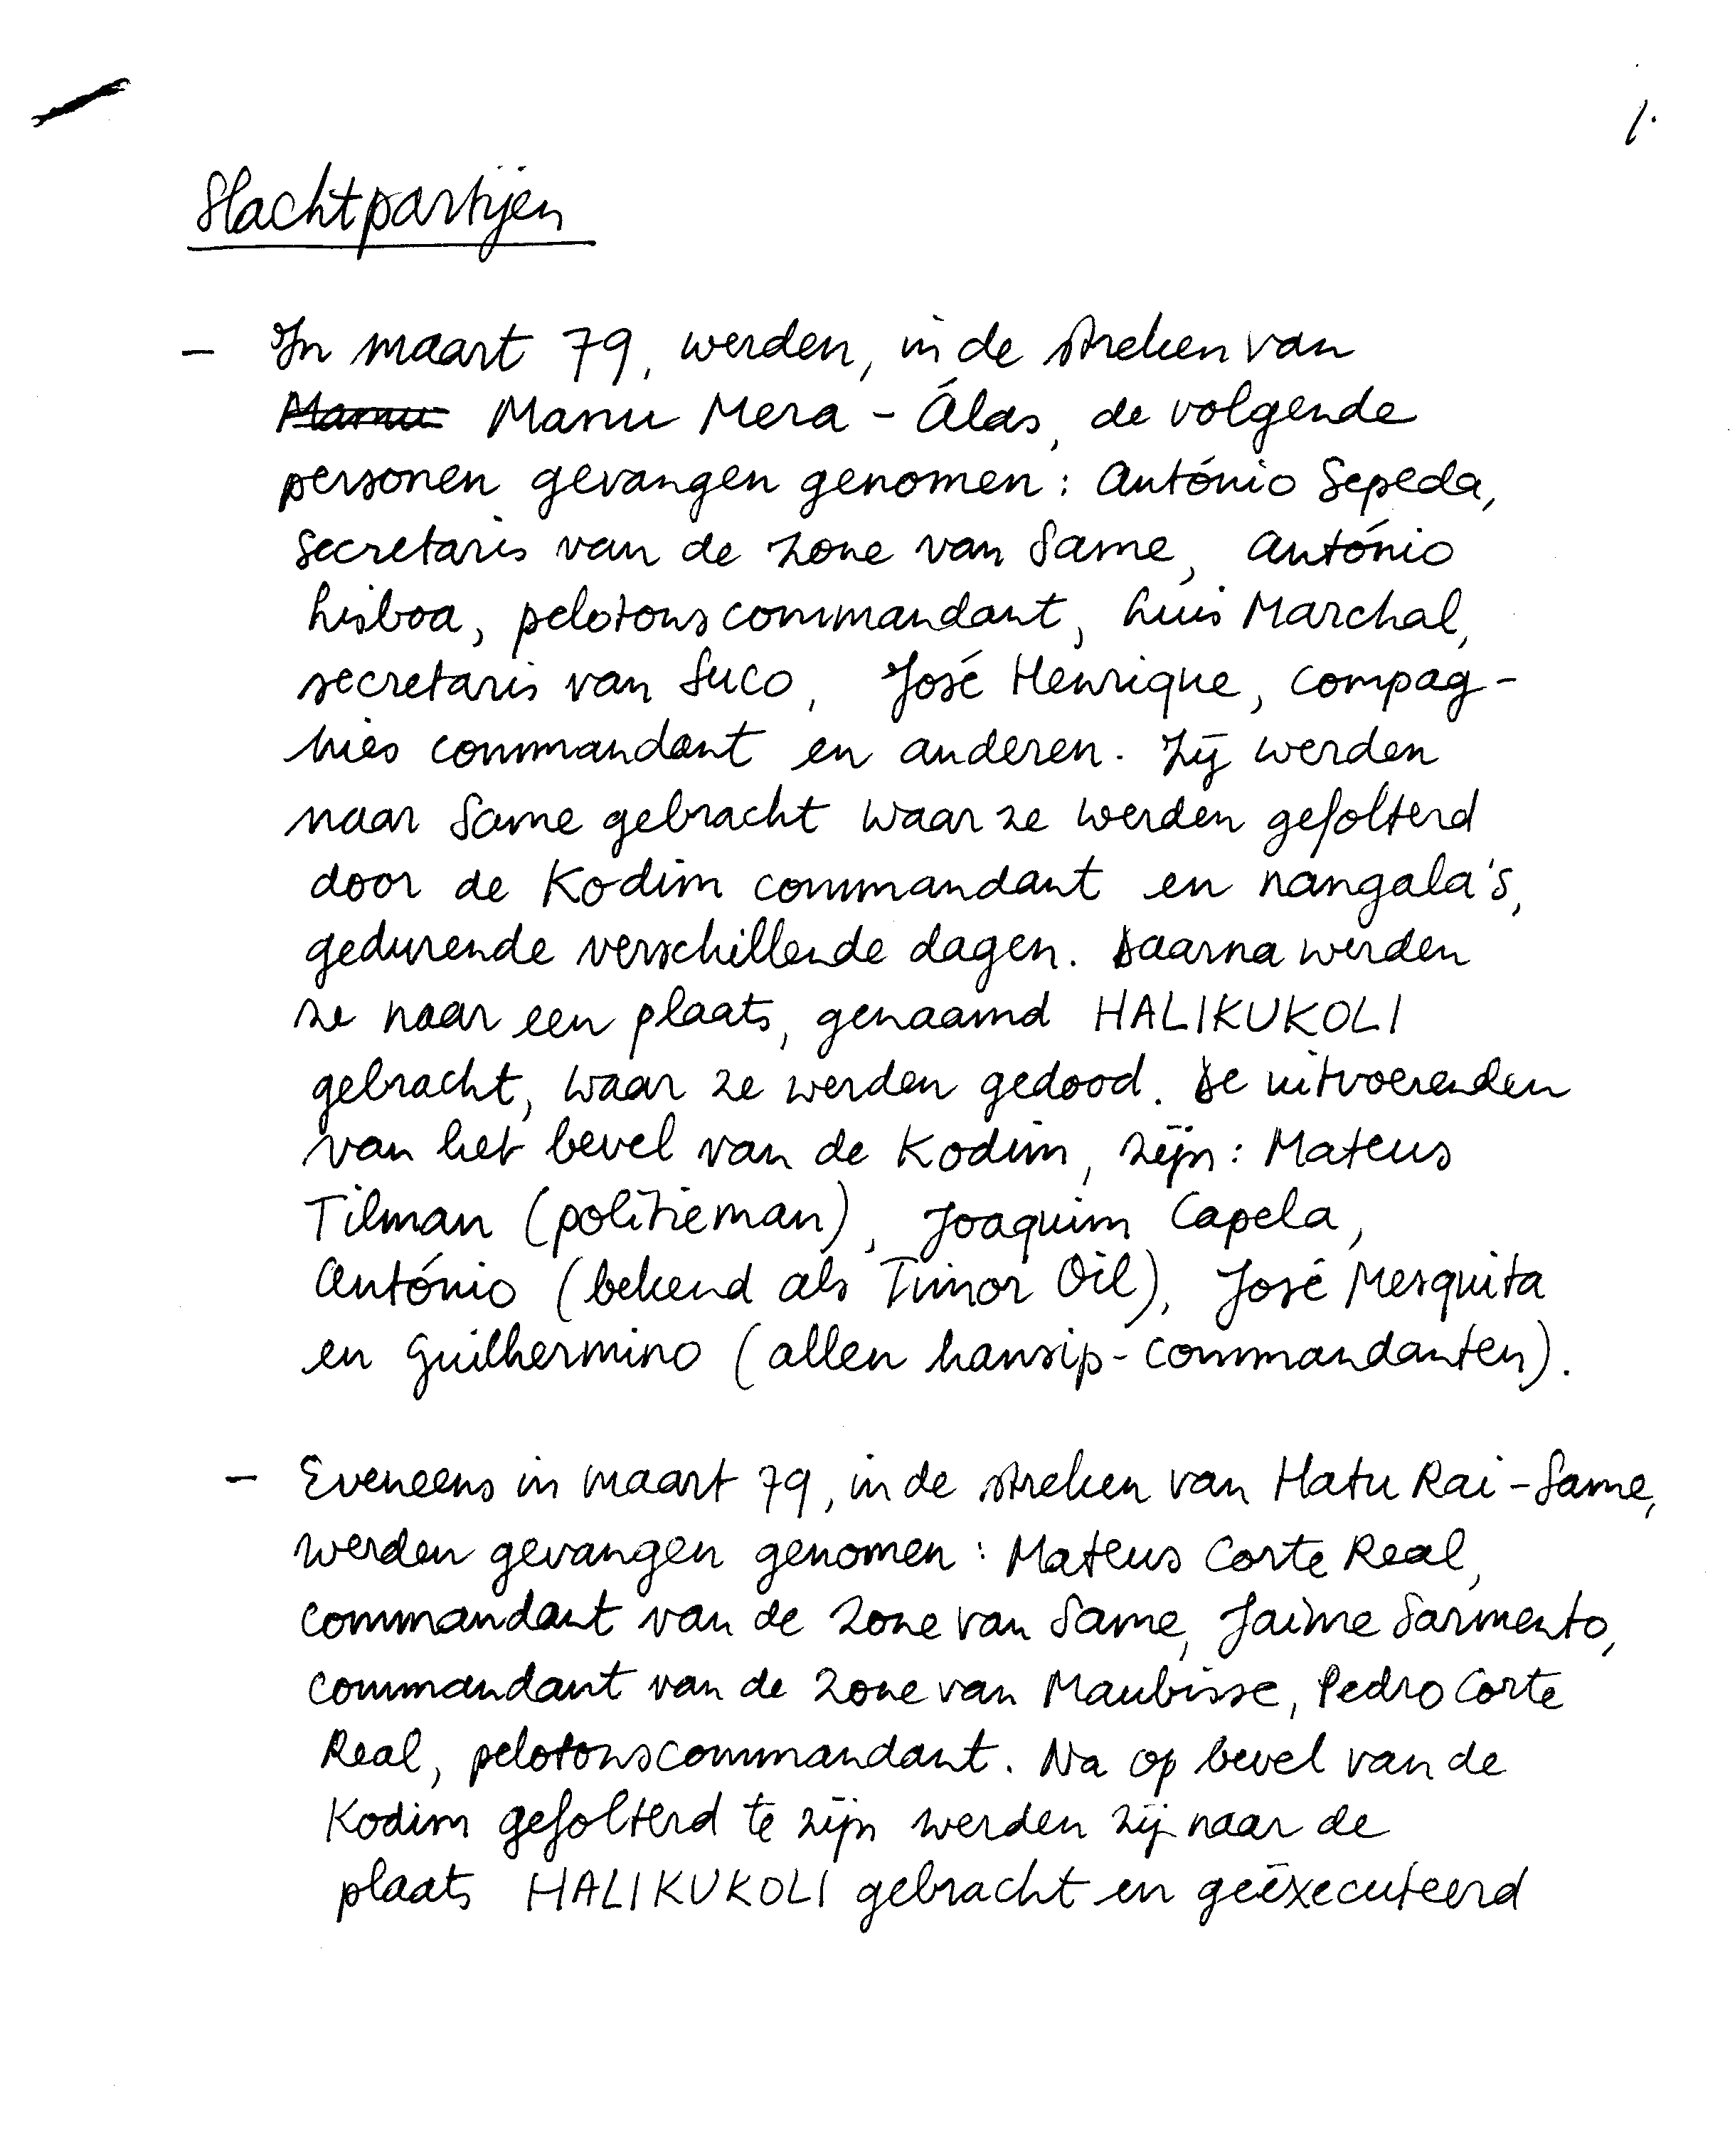 1.
Slachtpartijen
- In maart 79, werden, in de streken van
Manu Manu Mera - Álas, de volgende
personen gevangen genomen: António Sepeda,
secretaris van de zone van Same, António
Lisboa, pelotonscommandant, Luis Marchal,
secretaris van Suco, José Henrique, compag-
nies commandant en anderen. Zij werden
naar Same gebracht waar ze werden gefolterd
door de Kodim commandant en nangala's,
gedurende verschillende dagen. Daarna werden
ze naar een plaats, genaamd HALIKUKOLI
gebracht, waar ze werden gedood. De uitvoerenden
van het bevel van de Kodim, zijn: Mateus
Tilman (politieman), Joaquim Capela,
António (bekend als Timor Oil), José Mesquita
en Guilhermino (allen hansip-commandanten).
- Eveneens in maart 79, in de streken van Hatu Rai-Same,
werden gevangen genomen: Mateus Corte Real,
commandant van de zone van Same, Jaime Sarmento,
commandant van de zone van Maubisse, Pedro Corte
Real, pelotonscommandant. Na op bevel van de
Kodim gefolterd te zijn werden zij naar de
plaats HALIKUKOLI gebracht en geëxecuteerd